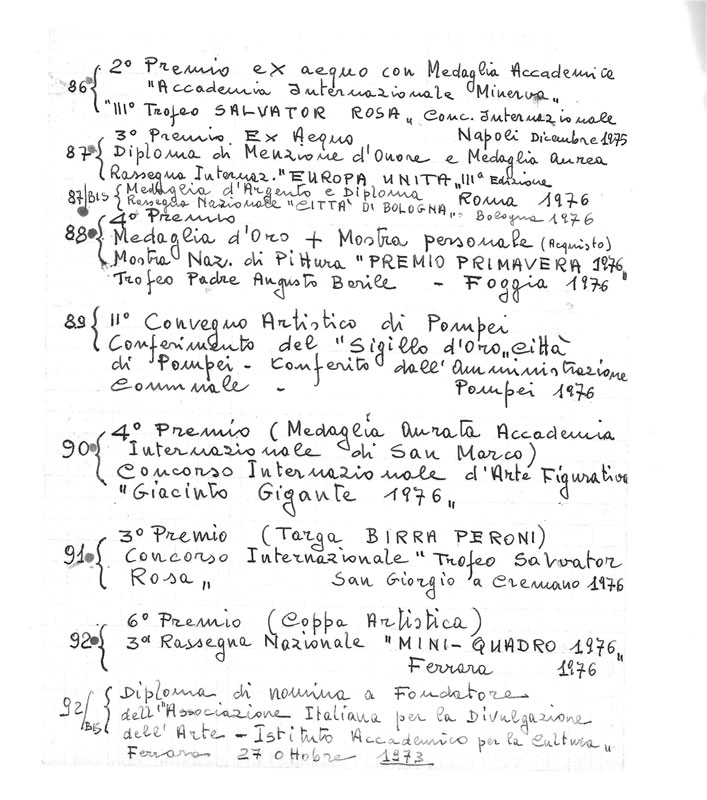 86 2° Premio ex aequo con Medaglia Accademica
"Accademia Internazionale Minerva„
"III° Trofeo SALVATOR ROSA„ Conc. Internazionale
3° Premio Ex Aequo Napoli Dicembre 1975
87 Diploma di Menzione d'Onore e Medaglia Aurea
Rassegna Internaz. "EUROPA UNITA„ IIIª Edizione
87/BIS Medaglia d'Argento e Diploma Roma 1976
Rassegna Nazionale "CITTÀ DI BOLOGNA„ Bologna 1976
4° Premio
88 Medaglia d'Oro + Mostra personale (Acquisto)
Mostra Naz. di Pittura "PREMIO PRIMAVERA 1976„
Trofeo Padre Augusto Berile - Foggia 1976
89 II° Convegno Artistico di Pompei
Conferimento del "Sigillo d'Oro„ Città
di Pompei - Conferito dall'Amministrazione
Comunale - Pompei 1976
90 4° Premio (Medaglia Aurata Accademia
Internazionale di San Marco)
Concorso Internazionale d'Arte Figurativa
"Giacinto Gigante 1976„
91 3° Premio (Targa BIRRA PERONI)
Concorso Internazionale "Trofeo Salvator
Rosa„ San Giorgio a Cremano 1976
92 6° Premio (Coppa Artistica)
3ª Rassegna Nazionale "MINI-QUADRO 1976„
Ferrara 1976
92/BIS Diploma di nomina a Fondatore
dell'"Associazione Italiana per la Divulgazione
dell'Arte - Istituto Accademico per la Cultura„
Ferrara 27 ottobre 1973